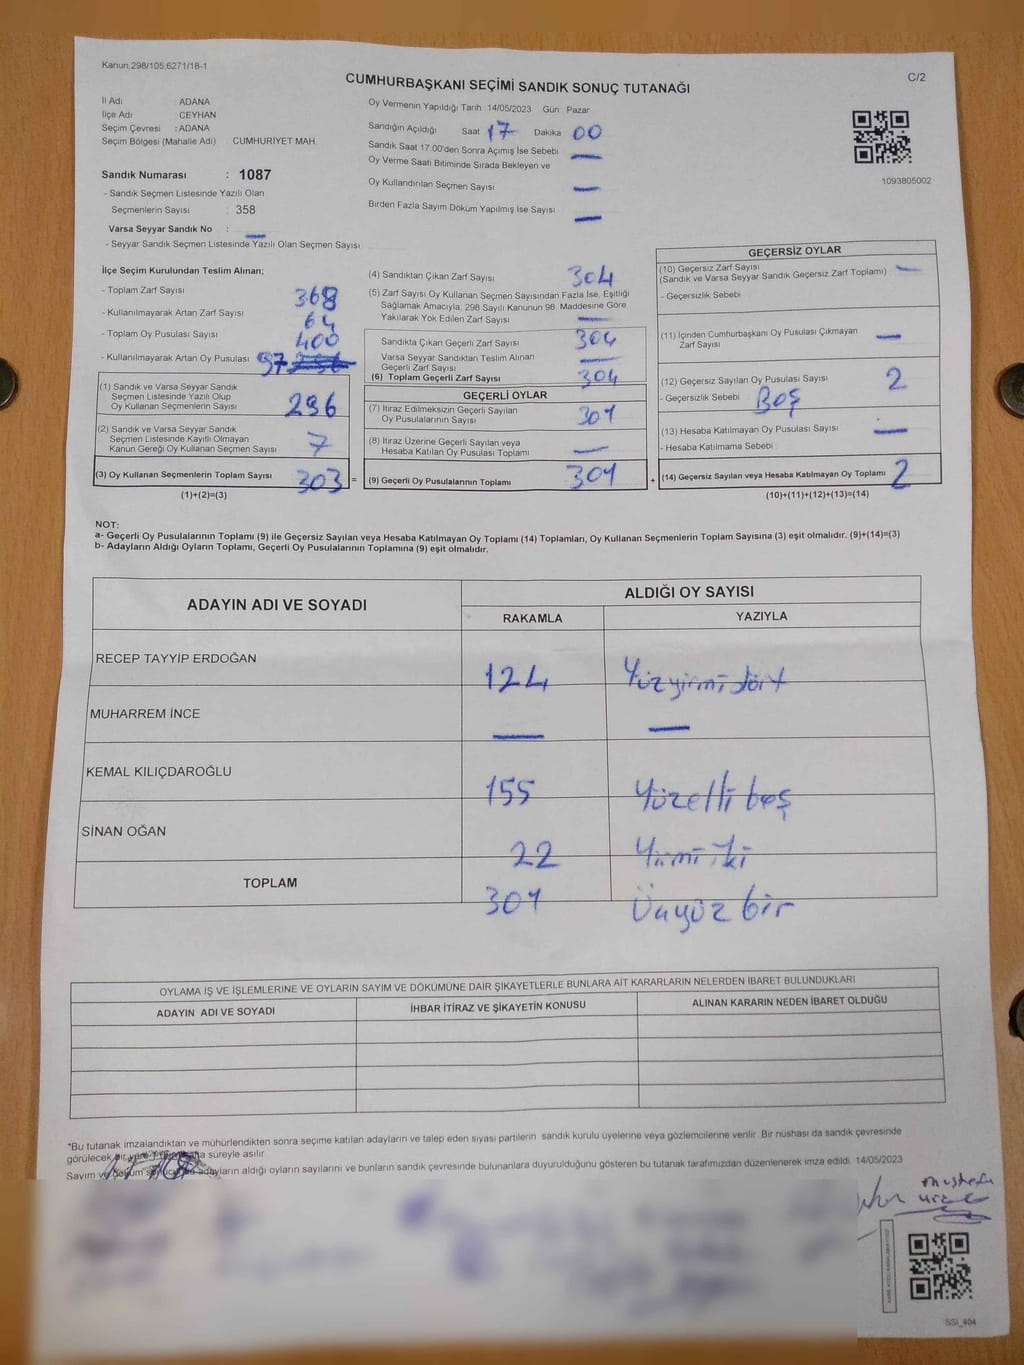 Kanun,298/105,6271/18-1
CUMHURBAŞKANI SEÇİMİ SANDIK SONUÇ TUTANAĞI
C/2
İl Adı ADANA
İlçe Adı CEYHAN
Seçim Çevresi : ADANA
Seçim Bölgesi (Mahalle Adı) CUMHURIYET MAH.
Sandık Numarası : 1087
- Sandık Seçmen Listesinde Yazılı Olan
Seçmenlerin Sayısı : 358
Varsa Seyyar Sandık No : —
- Seyyar Sandık Seçmen Listesinde Yazılı Olan Seçmen Sayısı
Oy Vermenin Yapıldığı Tarih 14/05/2023 Gün : Pazar
Sandığın Açıldığı Saat 17 Dakika 00
Sandık Saat 17:00'den Sonra Açımış İse Sebebi —
Oy Verme Saati Bitiminde Sırada Bekleyen ve
Oy Kullandırılan Seçmen Sayısı —
Birden Fazla Sayım Döküm Yapılmış İse Sayısı —
1093805002
İlçe Seçim Kurulundan Teslim Alınan;
- Toplam Zarf Sayısı 368
- Kullanılmayarak Artan Zarf Sayısı 64
- Toplam Oy Pusulası Sayısı 400
- Kullanılmayarak Artan Oy Pusulası 97
(1) Sandık ve Varsa Seyyar Sandık
Seçmen Listesinde Yazılı Olup
Oy Kullanan Seçmenlerin Sayısı 296
(2) Sandık ve Varsa Seyyar Sandık
Seçmen Listesinde Kayıtlı Olmayan
Kanun Gereği Oy Kullanan Seçmen Sayısı 7
(3) Oy Kullanan Seçmenlerin Toplam Sayısı 303 =
(1)+(2)=(3)
(4) Sandıktan Çıkan Zarf Sayısı 304
(5) Zarf Sayısı Oy Kullanan Seçmen Sayısından Fazla İse, Eşitliği
Sağlamak Amacıyla, 298 Sayılı Kanunun 98. Maddesine Göre
Yakılarak Yok Edilen Zarf Sayısı —
Sandıkta Çıkan Geçerli Zarf Sayısı 304
Varsa Seyyar Sandıktan Teslim Alınan
Geçerli Zarf Sayısı —
(6) Toplam Geçerli Zarf Sayısı 304
GEÇERLİ OYLAR
(7) İtiraz Edilmeksizin Geçerli Sayılan
Oy Pusulalarının Sayısı 301
(8) İtiraz Üzerine Geçerli Sayılan veya
Hesaba Katılan Oy Pusulası Toplamı —
(9) Geçerli Oy Pusulalarının Toplamı 301 +
GEÇERSİZ OYLAR
(10) Geçersiz Zarf Sayısı —
(Sandık ve Varsa Seyyar Sandık Geçersiz Zarf Toplamı)
- Geçersizlik Sebebi
(11) İçinden Cumhurbaşkanı Oy Pusulası Çıkmayan
Zarf Sayısı —
(12) Geçersiz Sayılan Oy Pusulası Sayısı 2
- Geçersizlik Sebebi Boş
(13) Hesaba Katılmayan Oy Pusulası Sayısı —
- Hesaba Katılmama Sebebi
(14) Geçersiz Sayılan veya Hesaba Katılmayan Oy Toplamı 2
(10)+(11)+(12)+(13)=(14)
NOT:
a- Geçerli Oy Pusulalarının Toplamı (9) ile Geçersiz Sayılan veya Hesaba Katılmayan Oy Toplamı (14) Toplamları, Oy Kullanan Seçmenlerin Toplam Sayısına (3) eşit olmalıdır. (9)+(14)=(3)
b- Adayların Aldığı Oyların Toplamı, Geçerli Oy Pusulalarının Toplamına (9) eşit olmalıdır.
ADAYIN ADI VE SOYADI
ALDIĞI OY SAYISI
RAKAMLA YAZIYLA
RECEP TAYYİP ERDOĞAN 124 Yüzyirmi dört
MUHARREM İNCE — —
KEMAL KILIÇDAROĞLU 155 Yüzelli beş
SİNAN OĞAN 22 Yirmi iki
TOPLAM 301 Üçyüz bir
OYLAMA İŞ VE İŞLEMLERİNE VE OYLARIN SAYIM VE DÖKÜMÜNE DAİR ŞİKAYETLERLE BUNLARA AİT KARARLARIN NELERDEN İBARET BULUNDUKLARI
ADAYIN ADI VE SOYADI İHBAR İTİRAZ VE ŞİKAYETİN KONUSU ALINAN KARARIN NEDEN İBARET OLDUĞU
*Bu tutanak imzalandıktan ve mühürlendikten sonra seçime katılan adayların ve talep eden siyasi partilerin sandık kurulu üyelerine veya gözlemcilerine verilir. Bir nüshası da sandık çevresinde
görülecek bir yere süreyle asılır.
Sayım ve döküm adayların aldığı oyların sayılarını ve bunların sandık çevresinde bulunanlara duyurulduğunu gösteren bu tutanak tarafımızdan düzenlenerek imza edildi. 14/05/2023
mustafa
SSİ_404